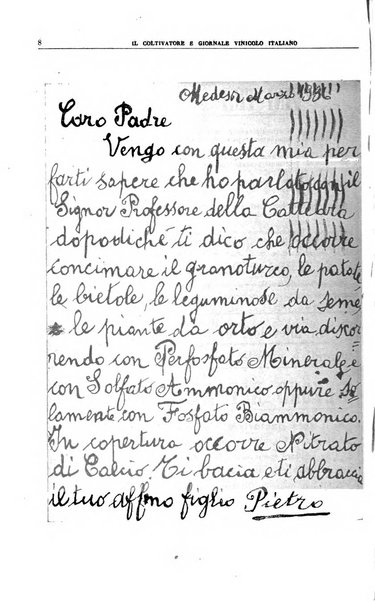 8 IL COLTIVATORE E GIORNALE VINICOLO ITALIANO
Marzo
Caro Padre
Vengo con questa mia per
farti sapere che ho parlato con il
Signor Professore della Cattedra
dopodiché ti dico che occorre
concimare il granoturco, le patate
le bietole, le leguminose da seme,
le piante da orto e via discor
rendo con Perfosfato Minerale e
con Solfato Ammonico oppure so
lamente con Fosfato Biammonico.
In copertura occorre Nitrato
di Calcio Ti bacia e ti abbraccia
il tuo affmo figlio Pietro